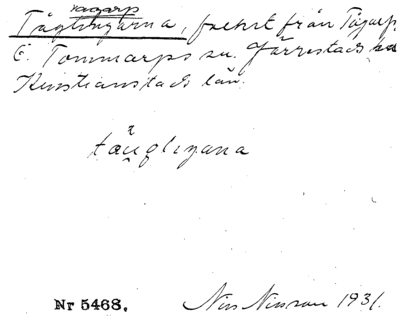 Tågarp
Tåglingarna, folket från Tågarp,
Ö. Tommarps sn. Järrestads hd
Kristianstads län.
Nr 5468. Nils Nilsson 1931.